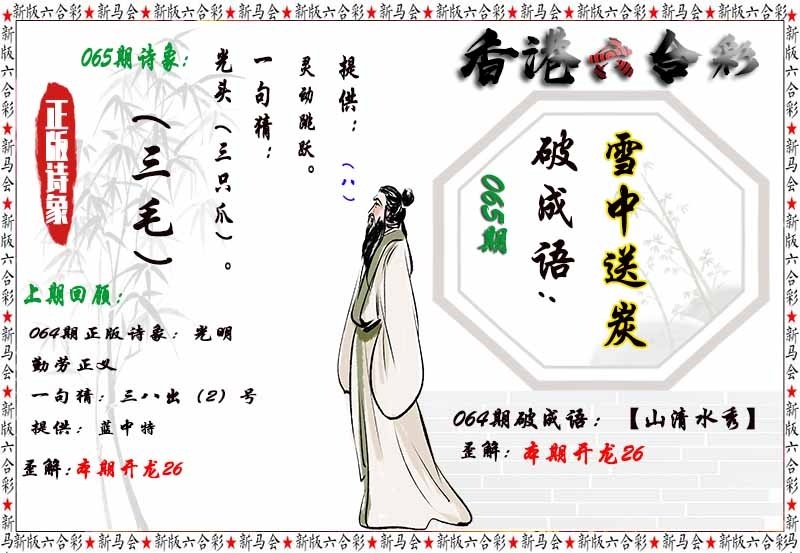 新版六合彩★新马会★新版六合彩★新马会★新版六合彩★新马会★新版六合彩★新马会★新版六合彩
香港六合彩
065期诗象：
正版诗象
（三毛）
光头（三只爪）。
一句猜：
灵动跳跃。
提供：（八）
上期回顾：
064期正版诗象：光明
勤劳正义
一句猜：三八出（2）号
提供：蓝中特
歪解：本期开龙26
065期
破成语：
雪中送炭
064期破成语：【山清水秀】
歪解：本期开龙26
新马会★新版六合彩★新马会★新版六合彩★新马会★新版六合彩★新马会★新版六合彩★新马会